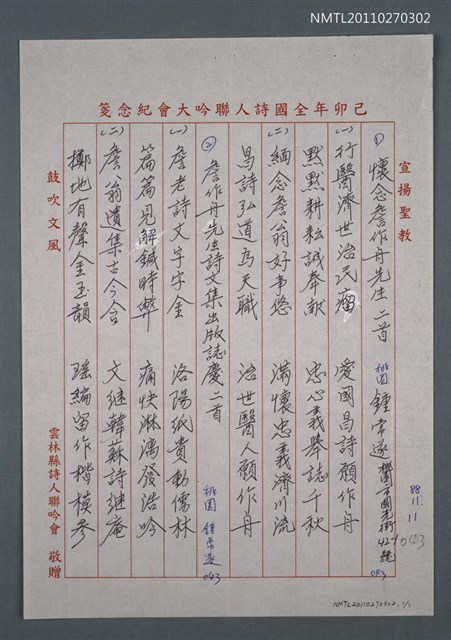 NMTL20110270302
己卯年全國詩人聯吟大會紀念箋
宣揚聖教
鼓吹文風
雲林縣詩人聯吟會 敬贈
88.11.11
① 懷念詹作舟先生二首 桃園 鍾常遂 桃園市國光街42-1號 043
(一) 行醫濟世治民瘤 愛國昌詩願作舟
默默耕耘誠奉獻 忠心義舉誌千秋
(二) 緬念詹翁好事悠 滿懷忠義濟川流
昌詩弘道為天職 治世醫人願作舟
② 詹作舟先生詩文集出版誌慶二首 桃園 鍾常遂 043
(一) 詹老詩文字字金 洛陽紙貴動儒林
篇篇見解鍼時弊 痛快淋漓發浩吟
(二) 詹翁遺集古今含 文继韓蘇詩继庵
擲地有聲金玉韻 瑶編留作楷模參
043
NMTL20110270302 1/1